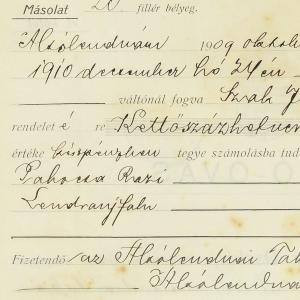 Másolat 20 fillér bélyeg.
Alsólendván 1909 október
1910 december hó 24 én
váltónál fogva Szak
rendelet é re Kettőszázhetven
értéke készpénzben tegye számolásba tud
Pahocsa Rozi
Lendvaujfalu
Fizetendő az Alsólendvai Tak
Alsólendva